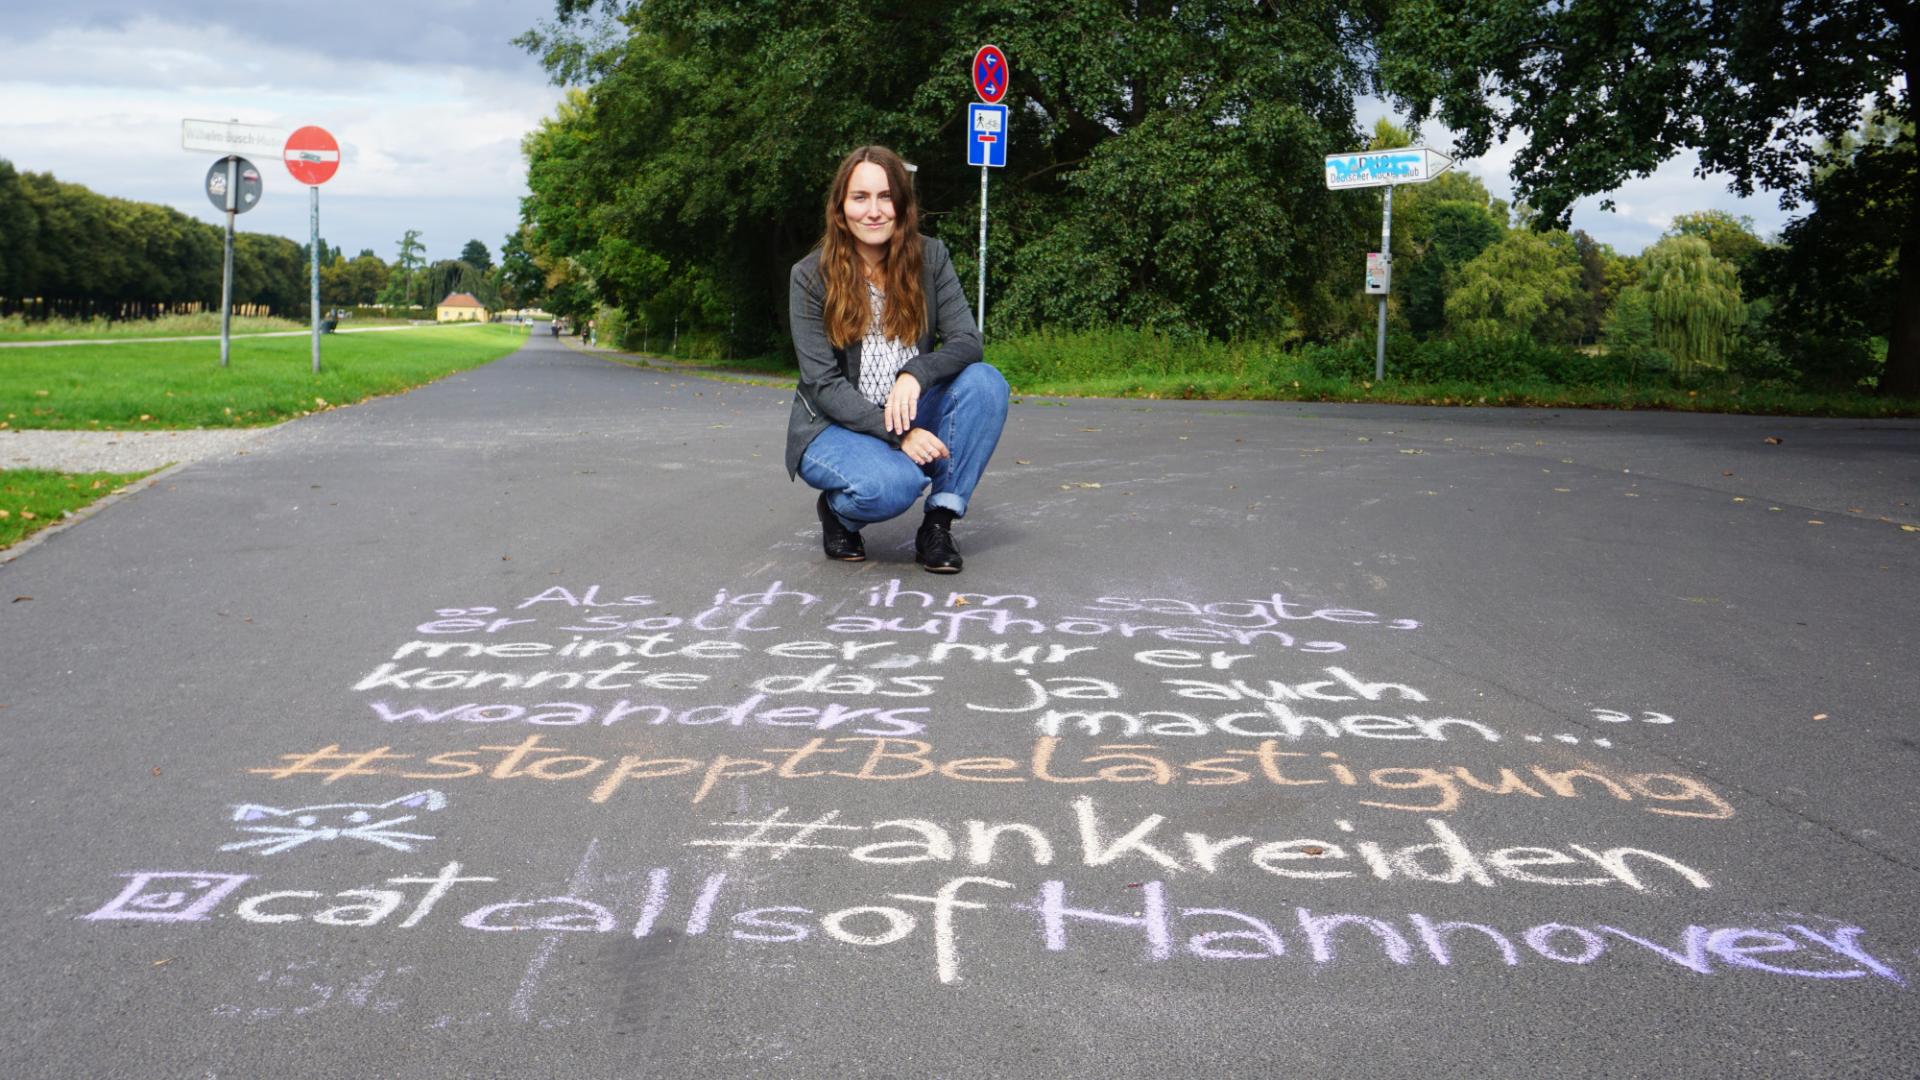 Wilhelm-Busch-Muse
Deutscher Rocker Club
„Als ich ihm sagte,
er soll aufhören,
meinte er nur er
konnte das ja auch
woanders machen..."
#stopptBelästigung
#ankreiden
catcallsofHannover